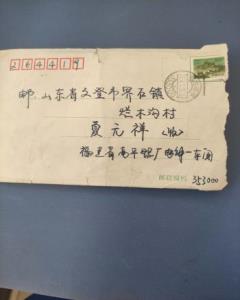 264419
邮:山东省文登市界石镇
烂木沟村
夏元祥(收)
福建省南平铝厂电解一车间
邮政编码 353000